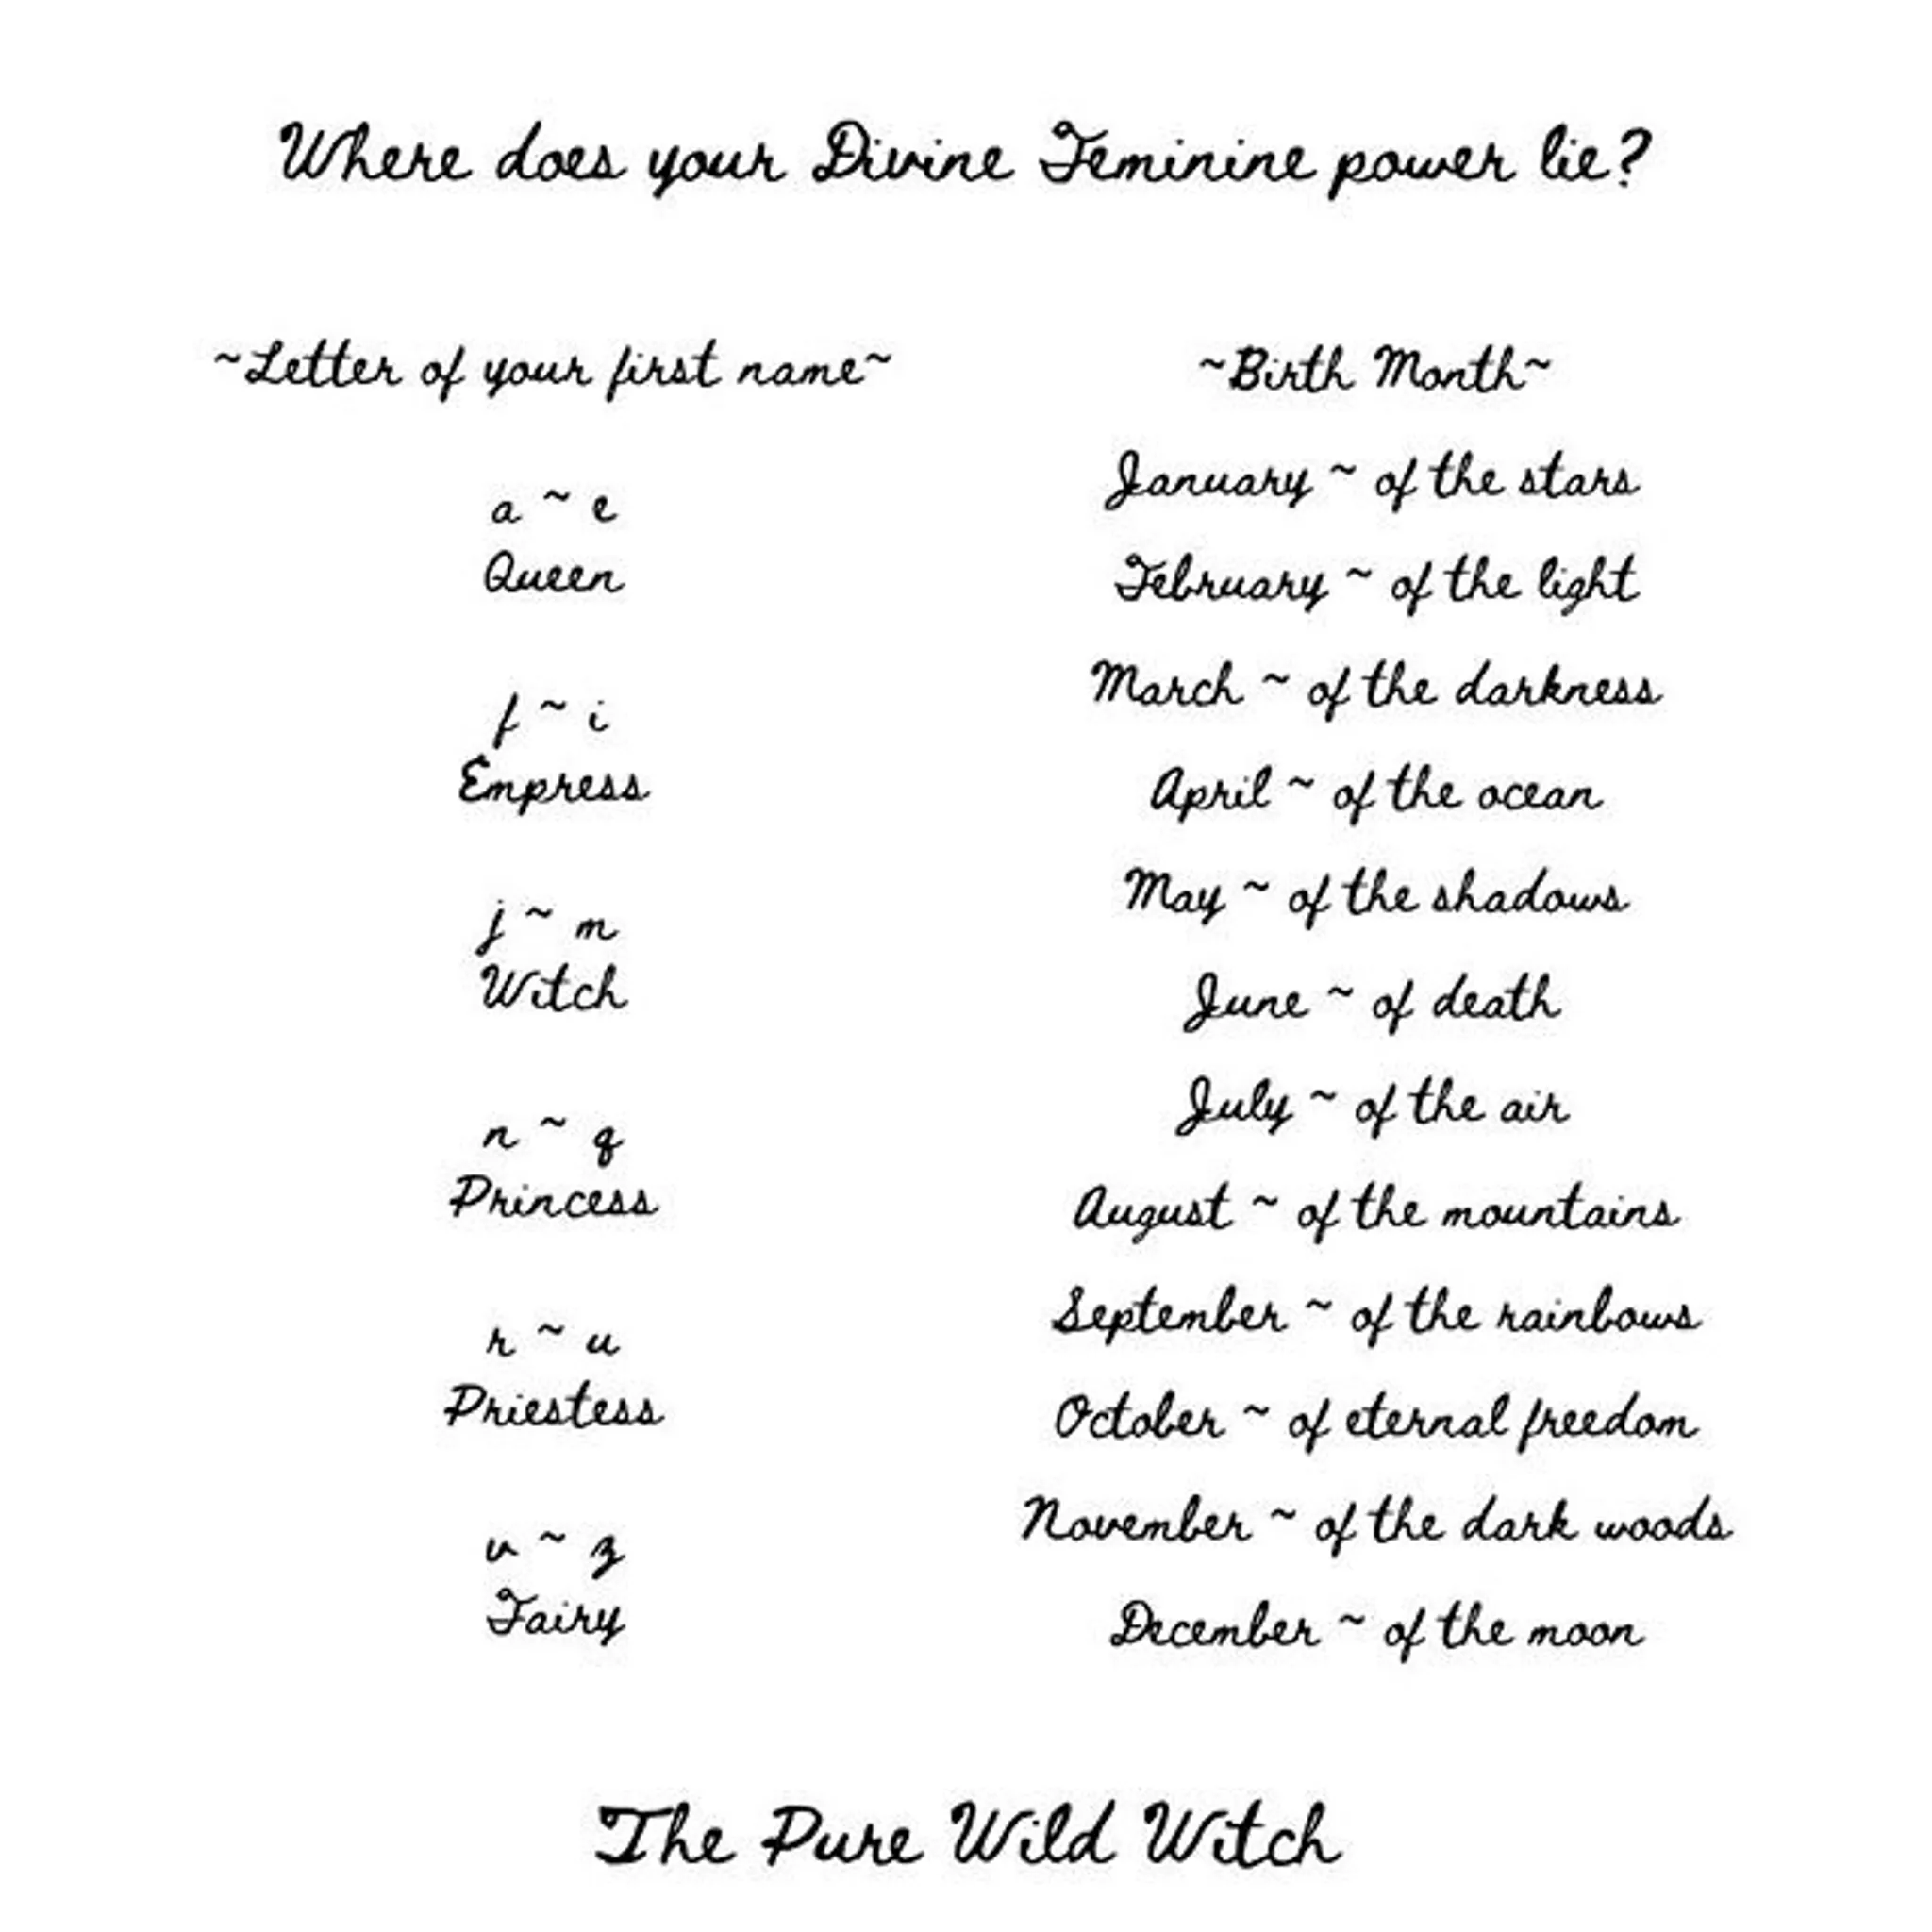 Where does your Divine Feminine power lie?
~Letter of your first name~
a ~ e
Queen
f ~ i
Empress
j ~ m
Witch
n ~ q
Princess
r ~ u
Priestess
v ~ z
Fairy
~Birth Month~
January ~ of the stars
February ~ of the light
March ~ of the darkness
April ~ of the ocean
May ~ of the shadows
June ~ of death
July ~ of the air
August ~ of the mountains
September ~ of the rainbows
October ~ of eternal freedom
November ~ of the dark woods
December ~ of the moon
The Pure Wild Witch